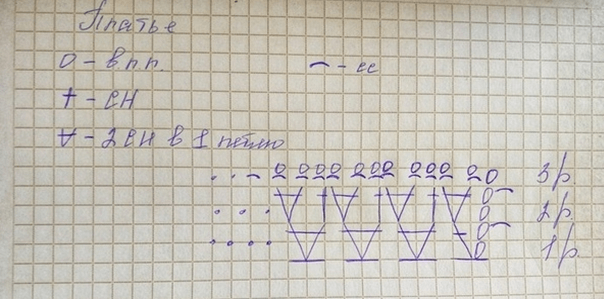 Платье
0 - в.п.п.
⌒ - сс
† - СН
∀ - 2СН в 1 петлю
3р.
2р.
1р.